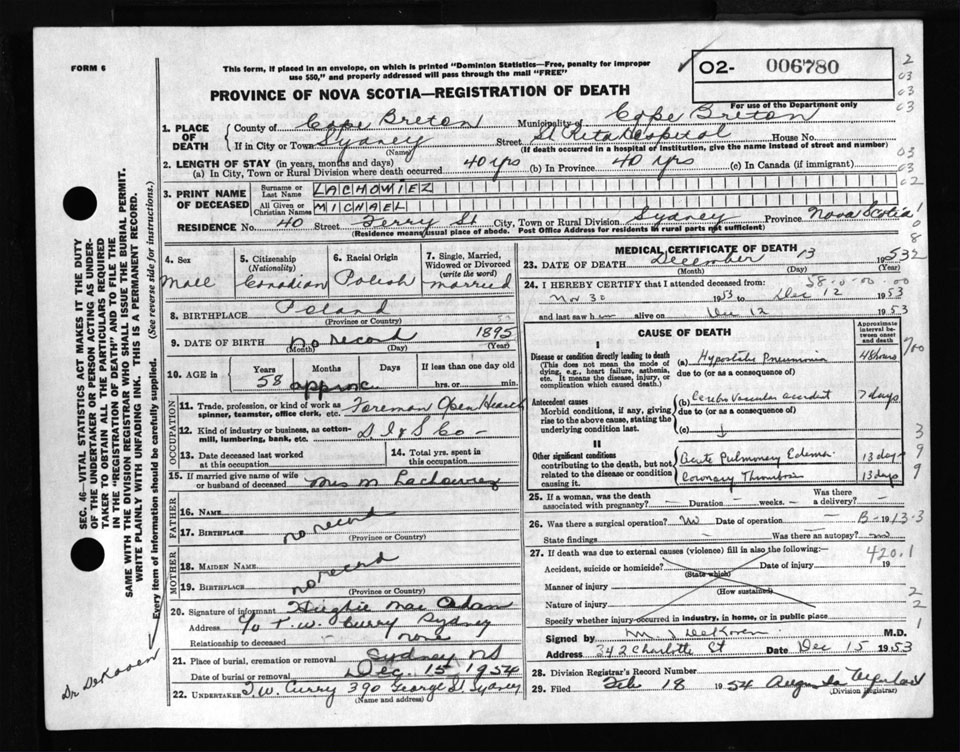 FORM 6
This form, if placed in an envelope, on which is printed "Dominion Statistics—Free, penalty for improper
use $50," and properly addressed will pass through the mail "FREE"
02- 006780
For use of the Department only
PROVINCE OF NOVA SCOTIA—REGISTRATION OF DEATH
1. PLACE OF DEATH
County of Cape Breton Municipality of Cape Breton
If in City or Town Sydney Street St Rita Hospital House No.
(Name) (If death occurred in a hospital of institution, give the name instead of street and number)
2. LENGTH OF STAY (in years, months and days)
(a) In City, Town or Rural Division where death occurred 40 yrs (b) In Province 40 yrs (c) In Canada (if immigrant)
3. PRINT NAME OF DECEASED
Surname or Last Name LACHOWIEZ
All Given or Christian Names MICHAEL
RESIDENCE No. 40 Street Ferry St City, Town or Rural Division Sydney Province Nova Scotia
(Residence means usual place of abode. Post Office Address for residents in rural parts not sufficient)
4. Sex Male
5. Citizenship (Nationality) Canadian
6. Racial Origin Polish
7. Single, Married, Widowed or Divorced (write the word) married
8. BIRTHPLACE Poland
(Province or Country)
9. DATE OF BIRTH no record 1895
(Month) (Day) (Year)
10. AGE in Years Months Days If less than one day old
58 approx. hrs. or min.
OCCUPATION
11. Trade, profession, or kind of work as spinner, teamster, office clerk, etc. Foreman Open Hearth
12. Kind of industry or business, as cotton-mill, lumbering, bank, etc. D. I & S Co-
13. Date deceased last worked at this occupation
14. Total yrs. spent in this occupation
15. If married give name of wife or husband of deceased Mrs M Lachowiez
FATHER
16. Name
17. Birthplace no record
(Province or Country)
MOTHER
18. Maiden Name
19. Birthplace no record
(Province or Country)
20. Signature of informant Hughie Mac Adam
Address c/o T. W. Curry Sydney
Relationship to deceased none
21. Place of burial, cremation or removal Sydney NS
Date of burial or removal Dec. 15th 1954
22. UNDERTAKER T.W. Curry 390 George St Sydney
(Name and address)
MEDICAL CERTIFICATE OF DEATH
23. DATE OF DEATH December 13 1953
(Month) (Day) (Year)
24. I HEREBY CERTIFY that I attended deceased from:
Nov 30 1953 to Dec 12 1953
and last saw h alive on Dec 12 1953
CAUSE OF DEATH
Approximate interval between onset and death
I
Disease or condition directly leading to death
(This does not mean the mode of dying, e.g., heart failure, asthenia, etc. It means the disease, injury, or complication which caused death.)
(a) Hypostatic Pneumonia 48 hours
due to (or as a consequence of)
Antecedent causes
Morbid conditions, if any, giving rise to the above cause, stating the underlying condition last.
(b) Cerebro Vascular accident 7 days
due to (or as a consequence of)
(c)
II
Other significant conditions
contributing to the death, but not related to the disease or condition causing it.
Acute Pulmonary Edema 13 days
Coronary Thrombosis 13 days
25. If a woman, was the death associated with pregnancy? Duration weeks. Was there a delivery?
26. Was there a surgical operation? no Date of operation 19
State findings Was there an autopsy? no
27. If death was due to external causes (violence) fill in also the following:—
420.1
Accident, suicide or homicide? Date of injury 19
(State which)
Manner of injury
(How sustained)
Nature of injury
Specify whether injury occurred in industry, in home, or in public place
Signed by M. J DeKoven M.D.
Address 342 Charlotte St Date Dec 15 1953
28. Division Registrar's Record Number
29. Filed Feb 18 1954
(Division Registrar)
SEC. 46—VITAL STATISTICS ACT MAKES IT THE DUTY
OF THE UNDERTAKER OR PERSON ACTING AS UNDER-
TAKER TO OBTAIN ALL THE PARTICULARS REQUIRED
IN THE "REGISTRATION OF DEATH" AND TO FILE THE
SAME WITH THE DIVISION REGISTRAR WHO SHALL ISSUE THE BURIAL PERMIT.
WRITE PLAINLY WITH UNFADING INK. THIS IS A PERMANENT RECORD.
Every item of information should be carefully supplied. (See reverse side for instructions.)
Dr DeKoven